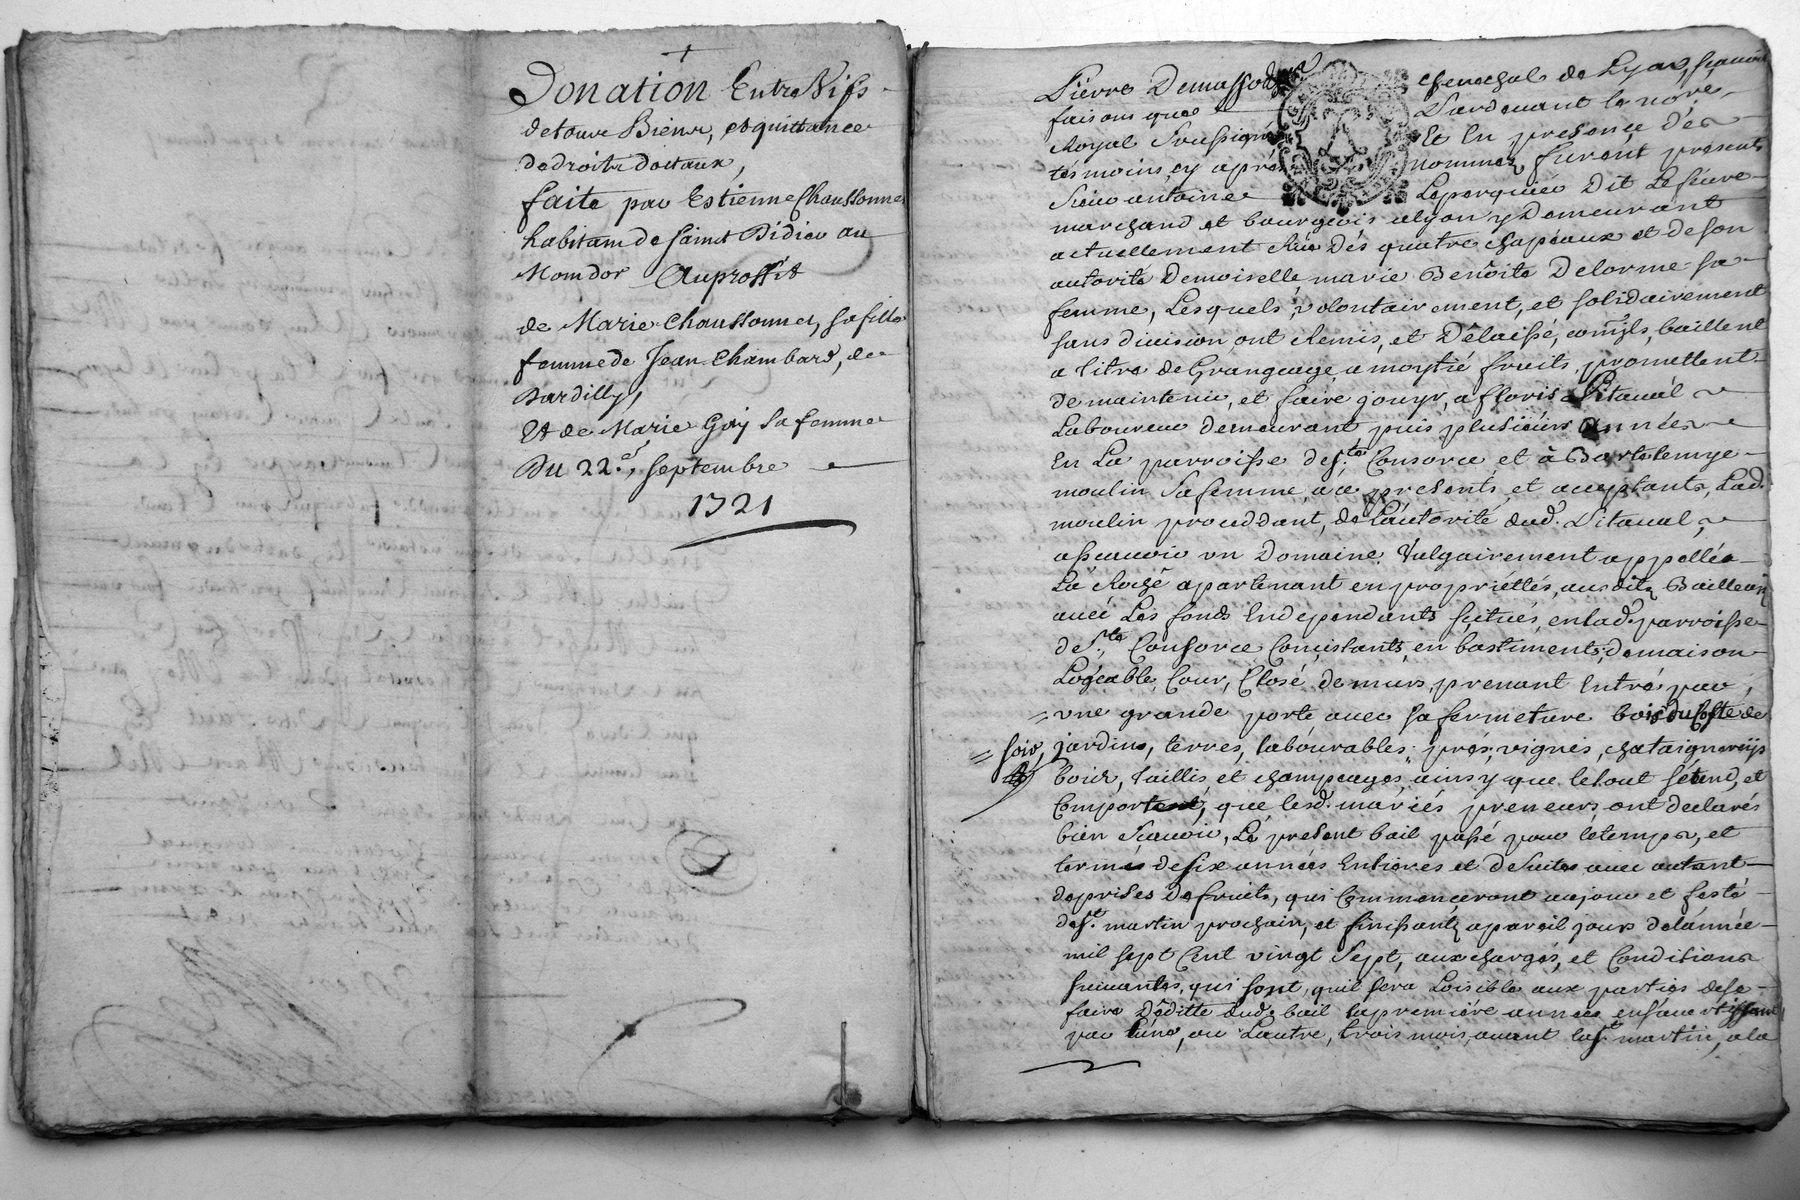 Donation Entre Vifs
de tous Biens, et quittance
de droits dottaux,
faite par Estienne Chaussonnet
habitant de Saint Didier au
Montdor Auproffit
de Marie Chaussonnet, sa fille
femme de Jean Chambard, de
Dardilly,
Et de Marie Gay sa femme
Du 22e. septembre
1721
Pierre Demasso
Chenechal de Lyon, sçavoir
faisons que Pardevant le no.re
Royal Soussigné Et En presence Dés
tesmoins cy aprés nommez furent presents
Sieur antoine Leperquiée Dit Lefeuvre
marchand et bourgeois alyon y Demeurant
actuellement Rüe Dés quatre chapeaux et de son
autorité Demoiselle marie Benoite Delorme sa
femme, Lesquels, volontairement, et solidairement
sans division, ont Remis, et Delaissé, comm'ils, baillent
a titre de Grangeage, a moytié fruits, promettent
de maintenir, et faire jouyr, a floris Pitaval
Laboureur demeurant puis plusieurs années
En La parroisse de Ste. Consorce et à Bartelemye
moulin Sa femme, icy presents, et acceptants, Lad.
moulin proceddant, de L'autorité dud. Pitaval,
asscavoir un Domaine Vulgairement appellée
La Roche apartenant en propriéttés, ausdits Bailleurs
avec Les fonds Independants scitués, en lad. parroisse
de Ste. Consorce Consistants, en bastiments, de maison
Logéable, Cour, Closé de murs, prenant Entrée par,
= une grande porte avec sa fermeture bois du Costé de
= soir, jardins, terres, labourables, prés, vignes, chataigneraÿs
bois, taillis, et champeages, ainsy que le tout sétend, et
Comporte, que lesd. mariés preneurs, ont declarés
bien scavoir, Le present bail passé pour le temps, et
termes de six années Entieres et de suites avec autant
de prises de fruits, qui Commenceront au jour et feste
de St. martin prochain, et finissants a pareil jour de l'année
mil sept Cent vingt Sept, aux charges, et Conditions
suivantes, qui sont, quil sera Loisible aux parties de se
faire Déditte dud. bail la premiére année en savertissant
par l'une, ou L'autre, trois mois, avant la St. martin, a la